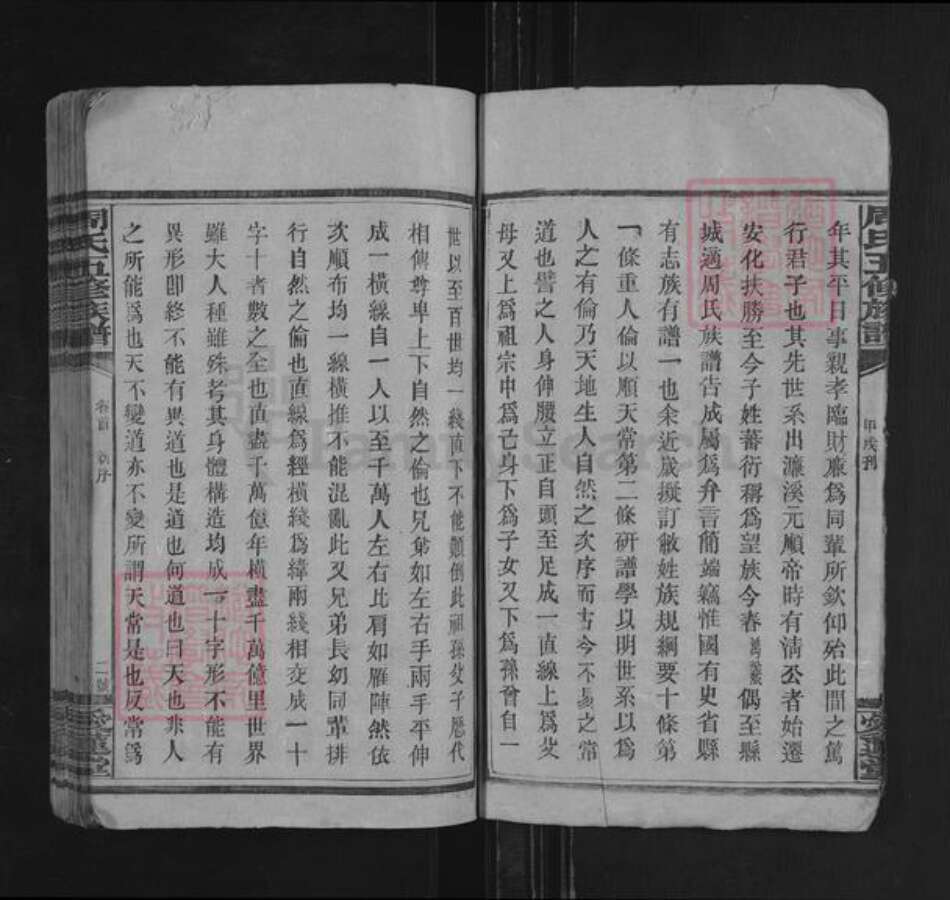 周氏五修族譜
甲戌刊
年其平日事親孝臨財廉爲同輩所欽仰殆此間之篤
行君子也其先世系出濂溪元順帝時有清公者始遷
安化扶勝至今子姓蕃衍稱爲望族今春偶至縣
城適周氏族譜告成屬爲弁言簡端竊惟國有史省縣
有志族有譜一也余近歲擬訂敝姓族規綱要十條第
一條重人倫以順天常第二條研譜學以明世系以爲
人之有倫乃天地生人自然之次序而古今不易之常
道也譬之人身伸腰立正自頭至足成一直線上爲父
母又上爲祖宗中爲己身下爲子女又下爲孫曾自一
世以至百世均一綫直下不能顛倒此祖孫父子歷代
相傳尊卑上下自然之倫也兄弟如左右手兩手平伸
成一橫線自一人以至千萬人左右比肩如雁陣然依
次順布均一線橫推不能混亂此又兄弟長幼同輩排
行自然之倫也直線爲經橫綫爲緯兩綫相交成一十
字十者數之全也直盡千萬億年橫盡千萬億里世界
雖大人種雖殊考其身體構造均成一十字形不能有
異形即終不能有異道也是道也何道也曰天也非人
之所能爲也天不變道亦不變所謂天常是也反常爲
周氏五修族譜
卷首
序
二號
Family Search